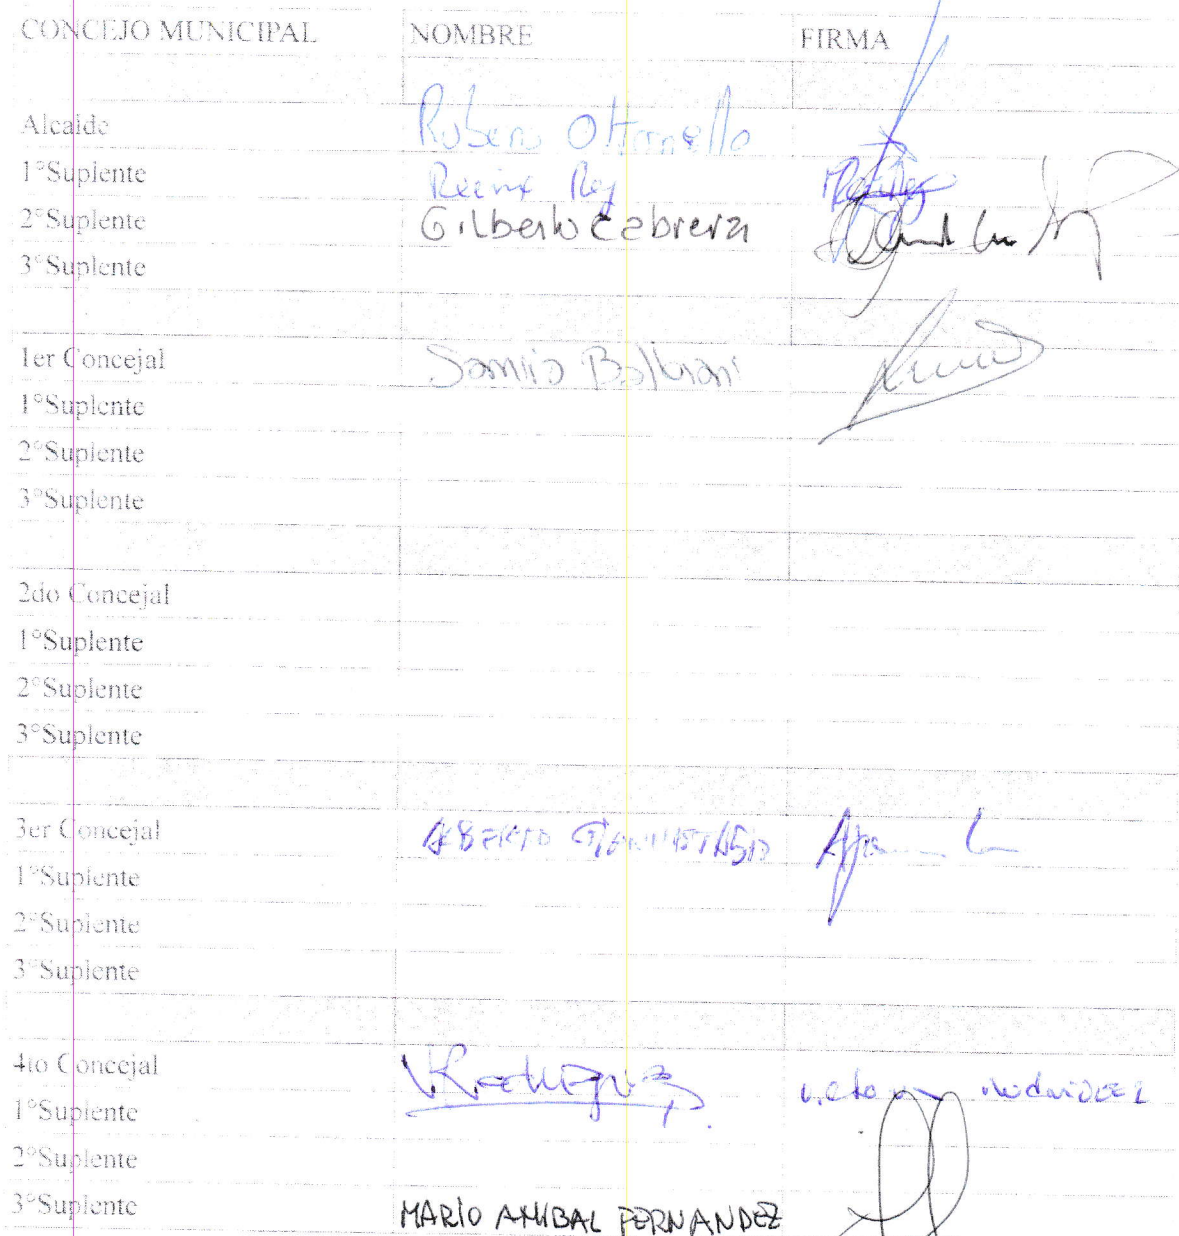 CONCEJO MUNICIPAL NOMBRE FIRMA
Alcalde Rubens Ottonello
1°Suplente Rey
2°Suplente Gilberto Cabrera
3°Suplente
1er Concejal
1°Suplente
2°Suplente
3°Suplente
2do Concejal
1°Suplente
2°Suplente
3°Suplente
3er Concejal ALBERTO
1°Suplente
2°Suplente
3°Suplente
4to Concejal V.Rodriguez
1°Suplente
2°Suplente
3°Suplente MARIO ANIBAL FERNANDEZ